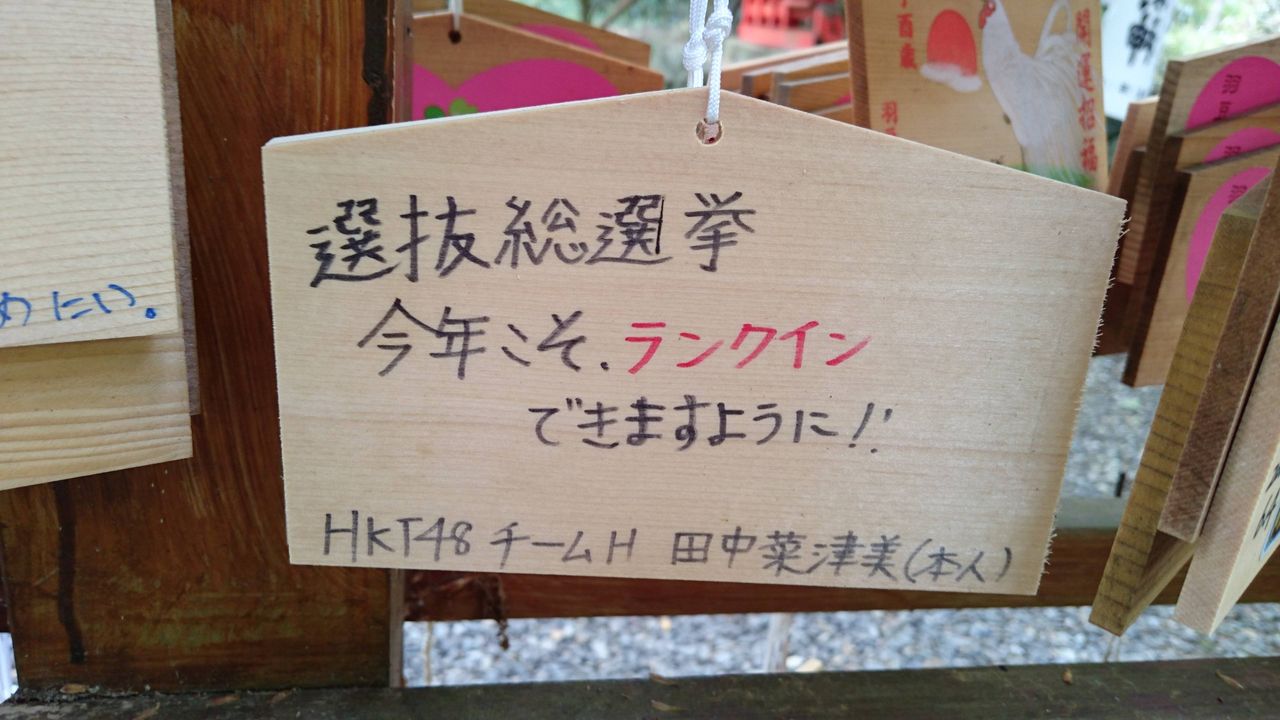 選抜総選挙
今年こそ.ランクイン
できますように!!
HKT48 チームH 田中菜津美(本人)
めにい。
開運招福
酉歳